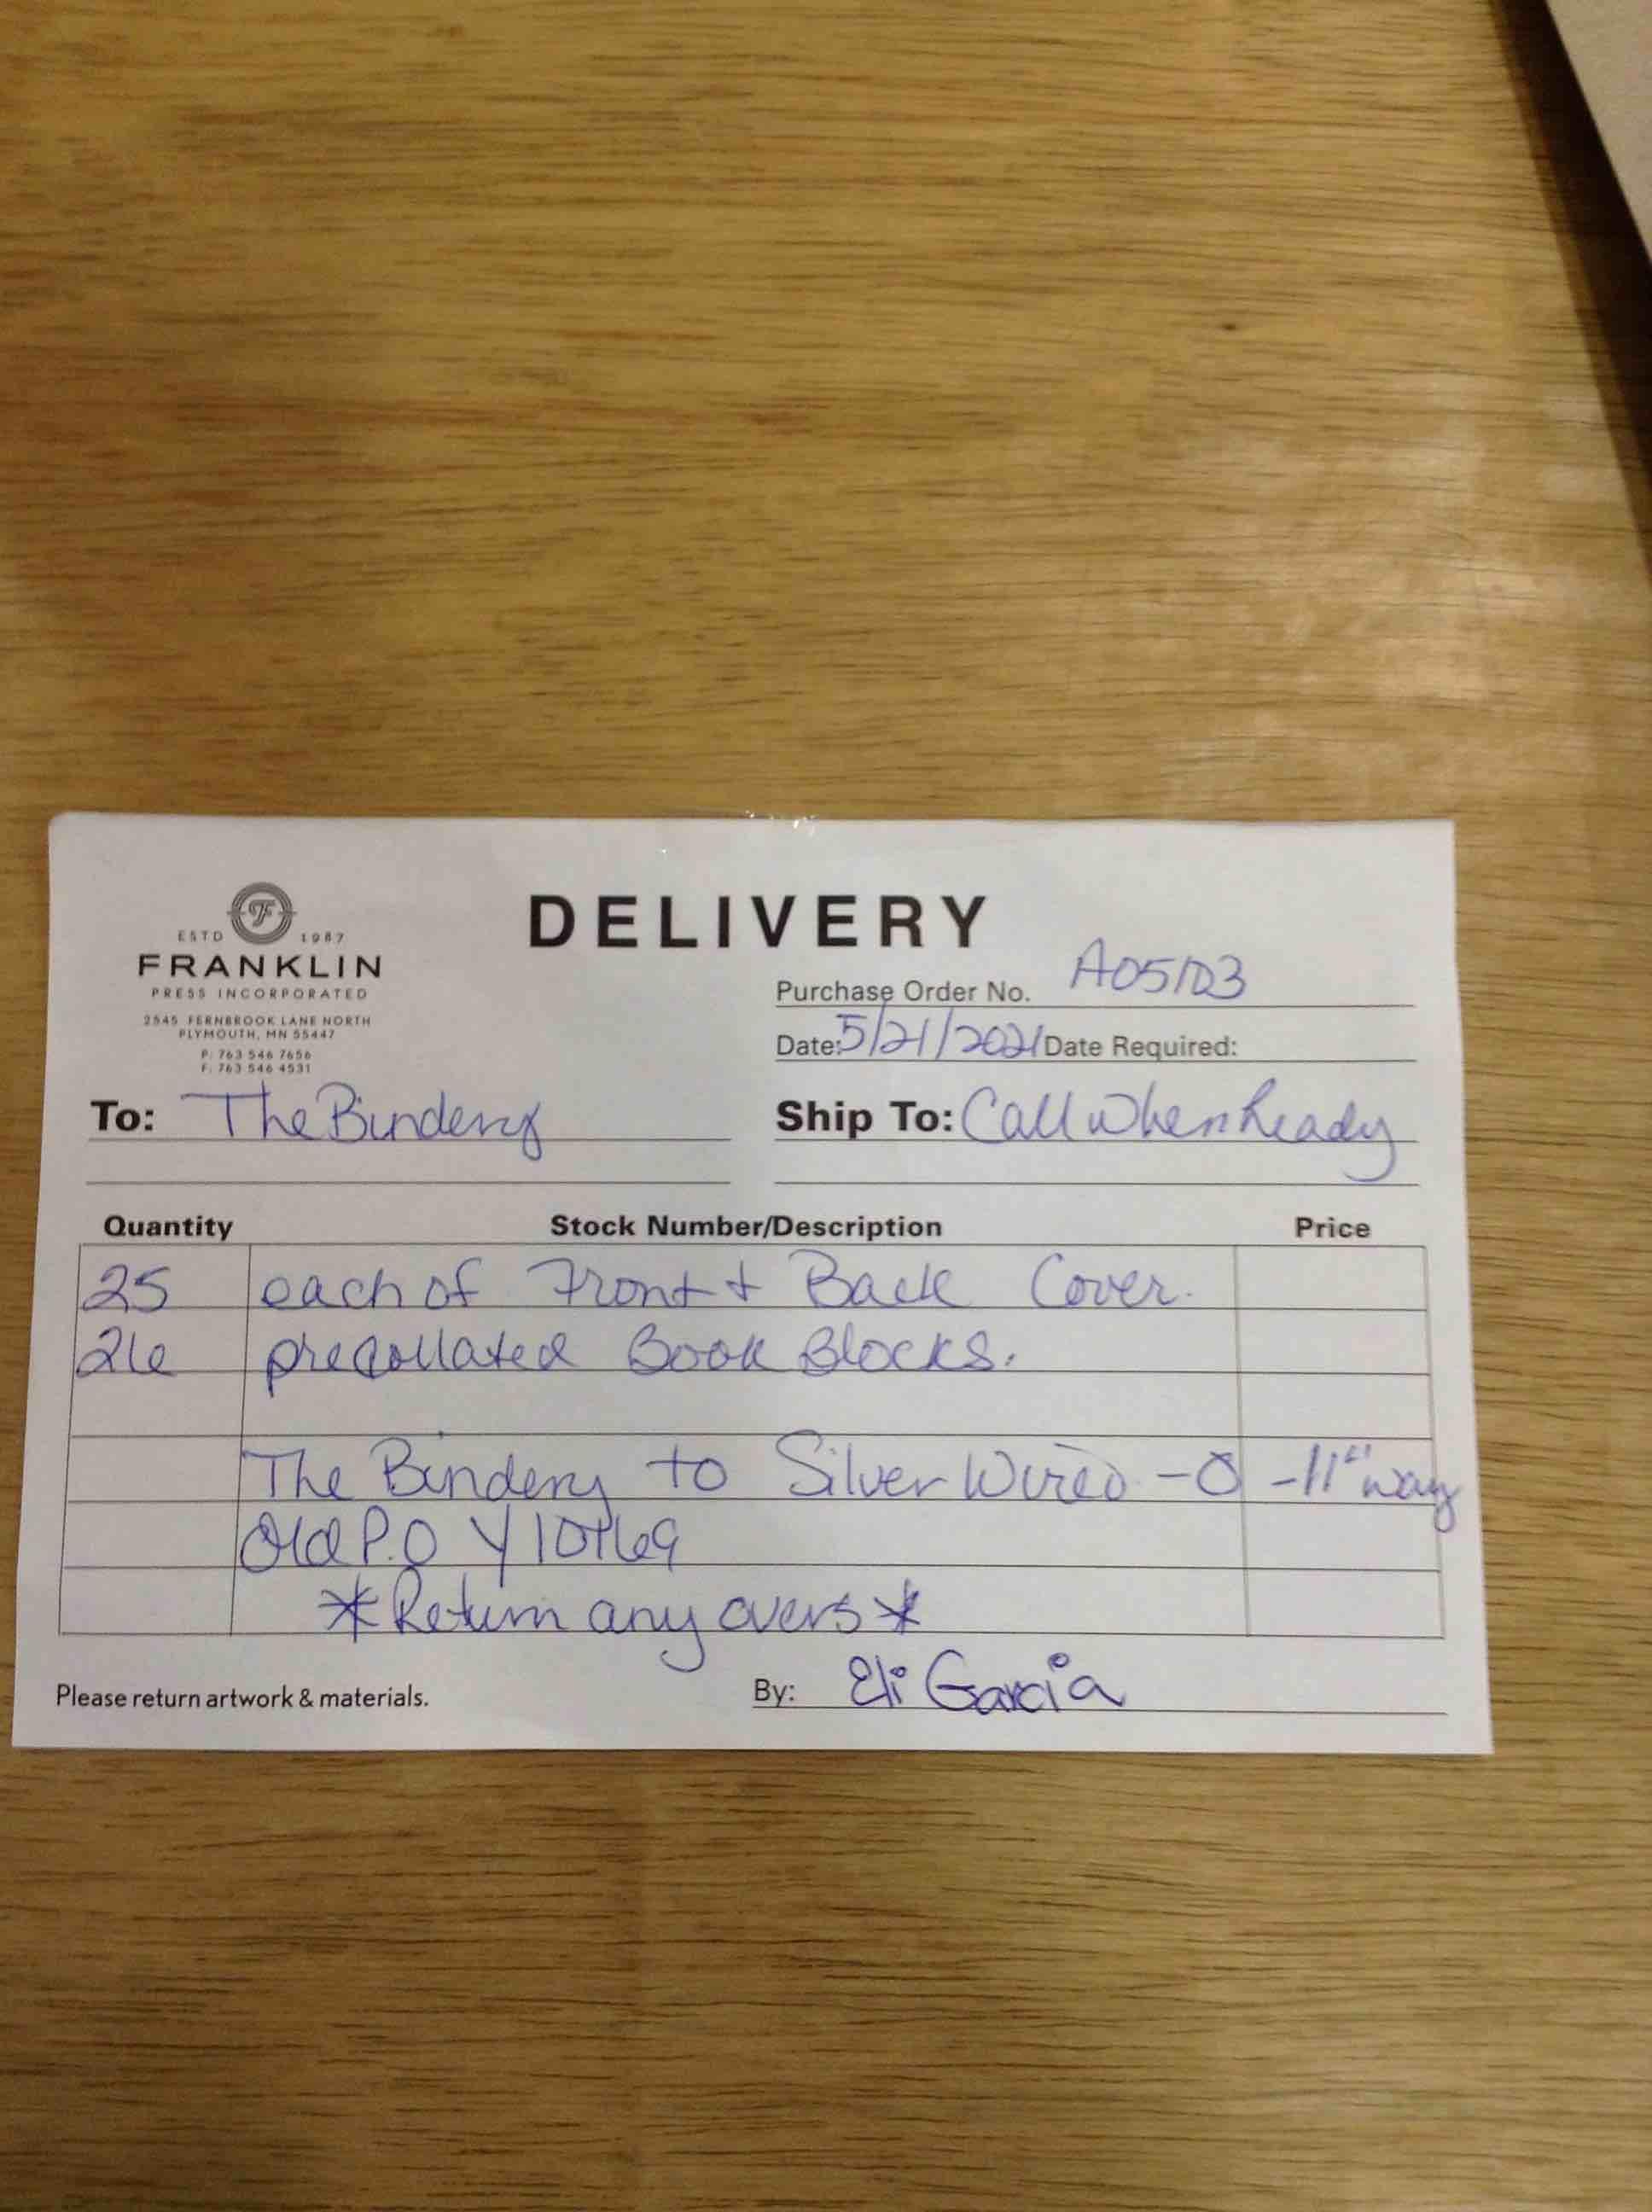 DELIVERY
ESTD 1987
FRANKLIN
PRESS INCORPORATED
2545 FERNBROOK LANE NORTH
PLYMOUTH, MN 55447
P: 763 546 7656
F: 763 546 4531
Purchase Order No.
Date: 5/21/2021 Date Required:
To: The Bindery
Ship To: Call When Ready
Quantity Stock Number/Description Price
25 each of Front + Back Cover.
26 precollated Book Blocks.
The Bindery to Silver Wire-O -11" way
Old P.O
*Return any overs*
Please return artwork & materials.
By: Eli Garcia